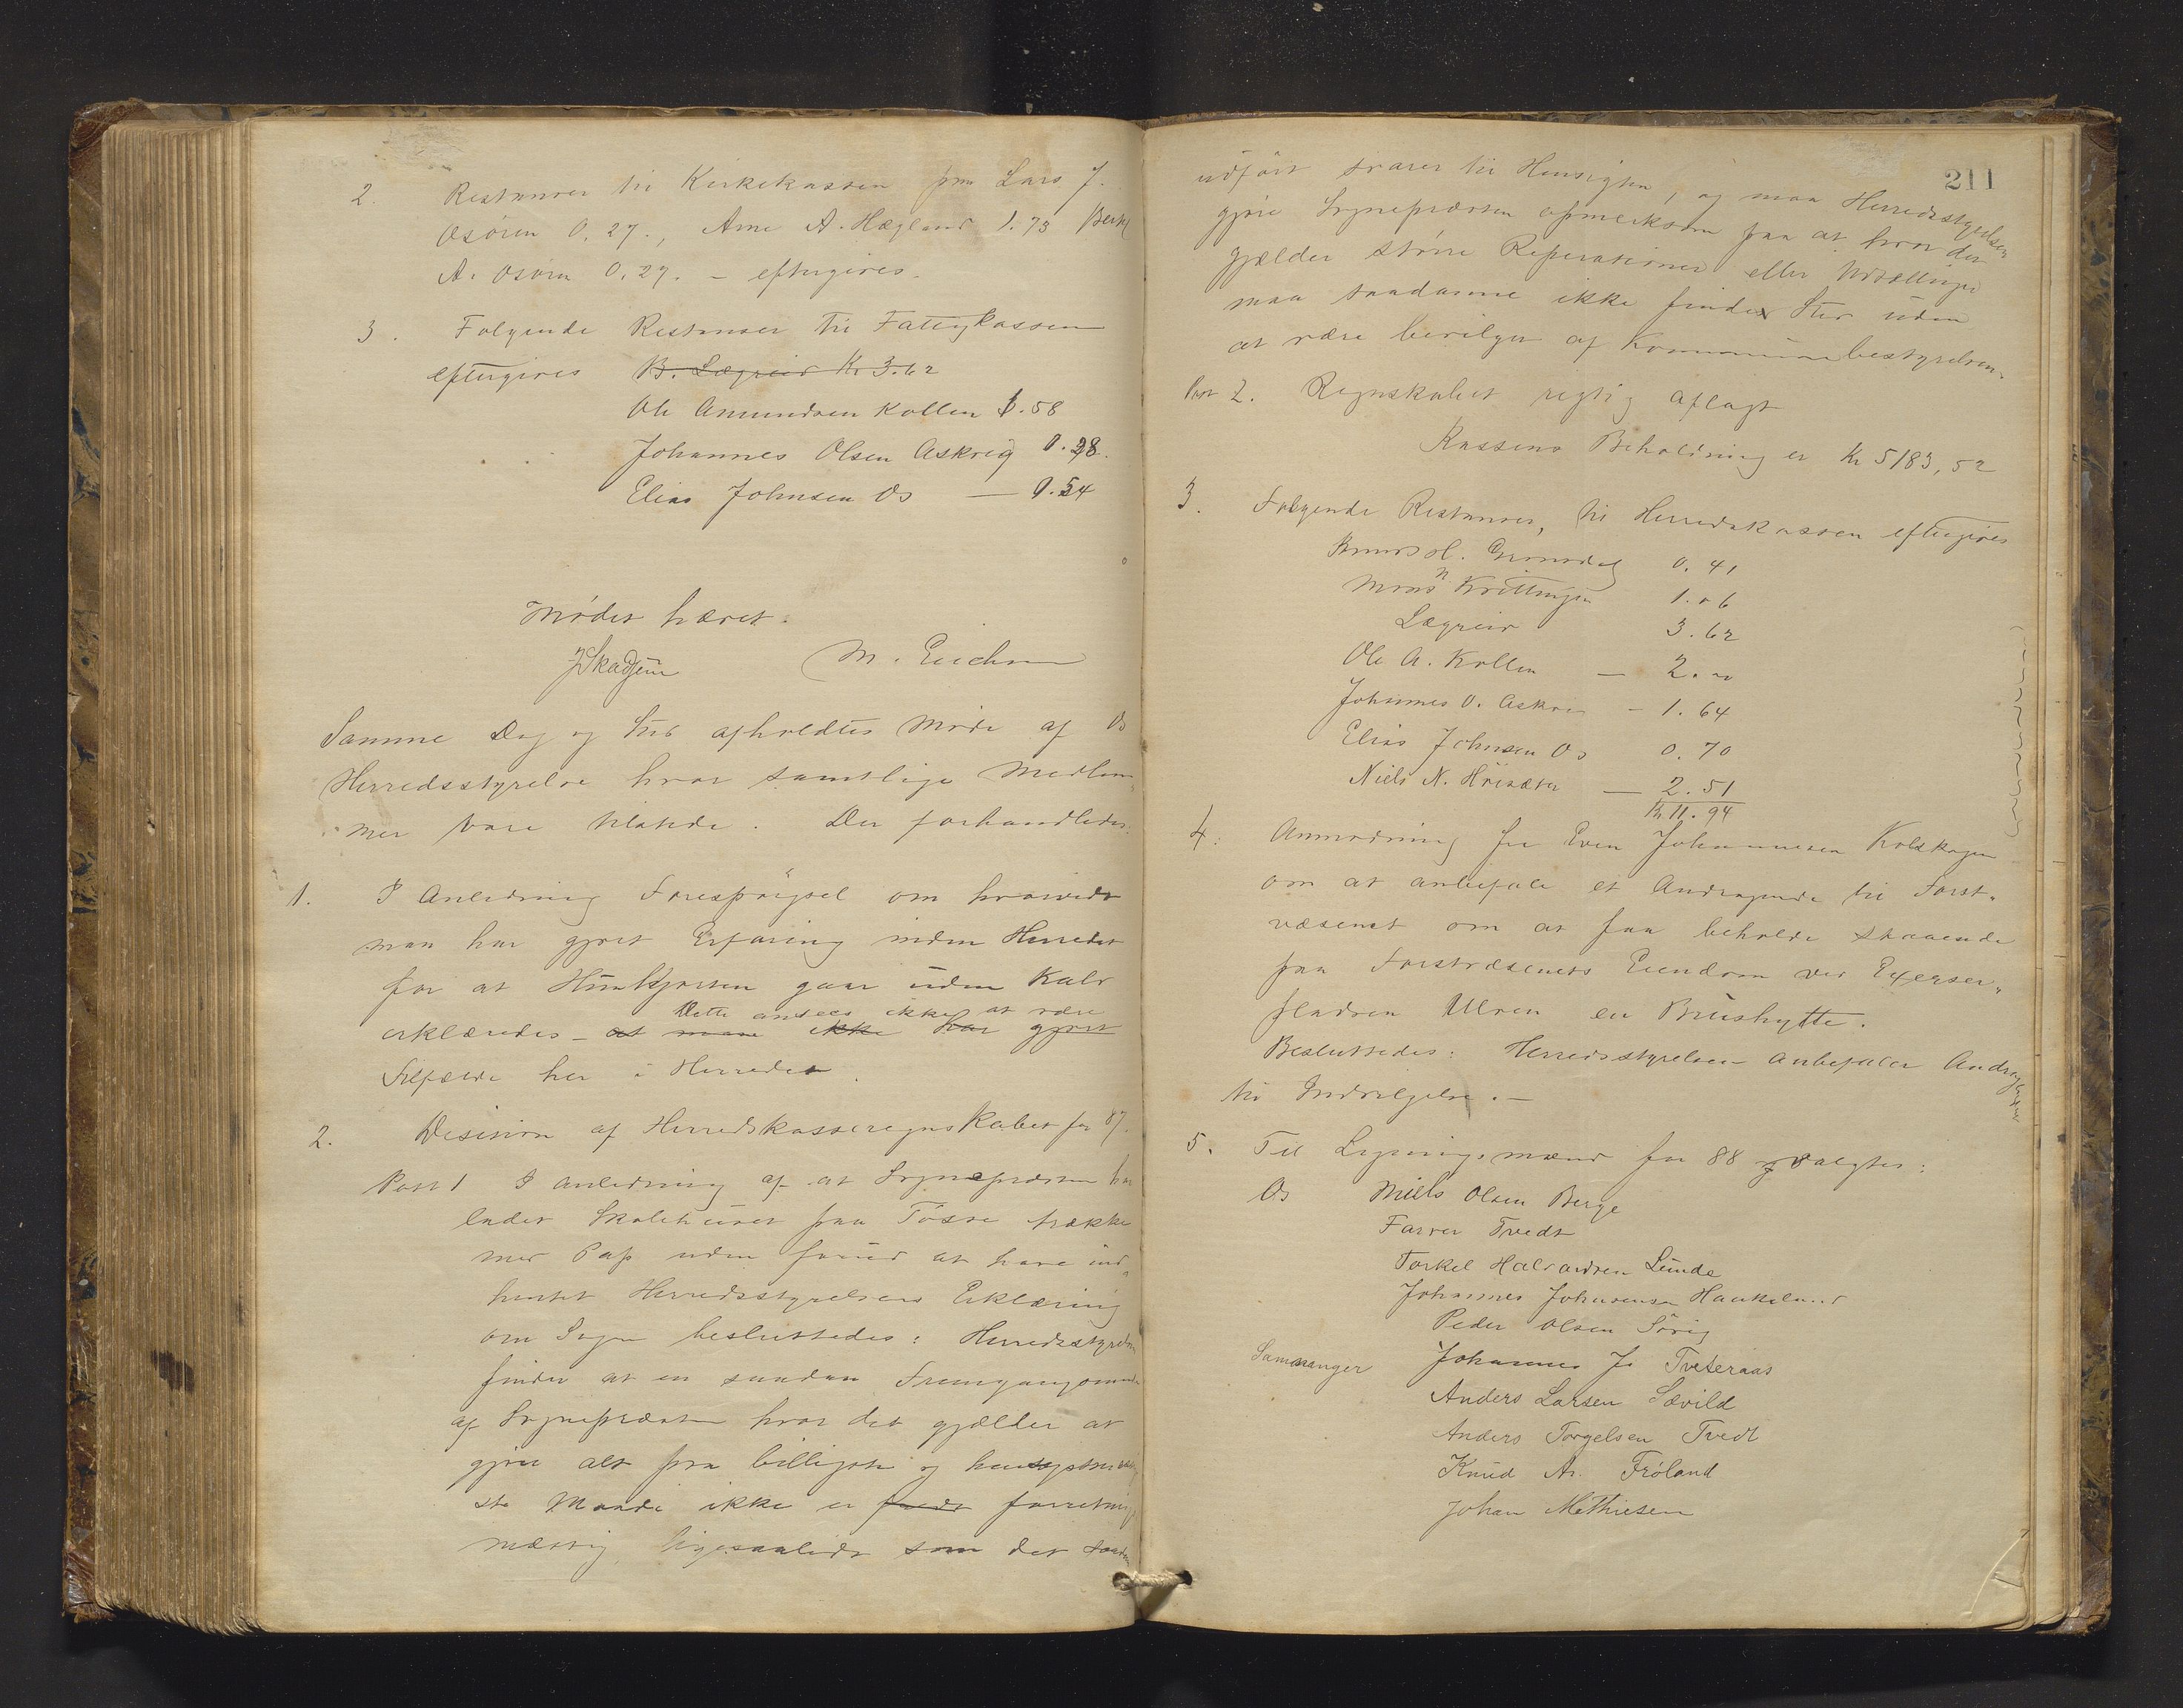 2. Restanser til Kirkekassen fra Lars J.
Osøren 0.27., Arne A. Hægland 1.73 Berth
A. Osøren 0.27. – eftergives.
3. Følgende Restanser til Fattigkassen
eftergives B. Lægreid Kr 3.62
Ole Amundsen Kollen 1.58
Johannes Olsen Askvig 0.38.
Elias Johnsen Os — 0.54
Mødet hævet.
M. Erichsen
Samme Dag og Sted afholdtes Møde af Os
Herredsstyrelse hvor samtlige Medlem„
mer vare tilstede. Der forhandledes:
1. I Anledning Forespørgsel om hvorvidt
man har gjort Erfaring inden Herredet
for at Hunhjorten gaar uden Kalv
Dette ansees ikke at være
erklæredes – at man ikke har gjort
Tilfælde her i Herredet.
2. Desision af Herredskasseregnskabet for 87.
Post 1 I anledning af at Sognepræsten har
ladet Skolehuset paa Tøsse trække
med Pap uden forud at have ind„
hentet Herredsstyrelsens Erklæring
om Sagen besluttedes: Herredsstyrelsen
finder at en saadan Fremgangsmaade
af Sognepræsten hvor det gjælder at
gjøre alt paa billigste og hensigtsmæssig
ste Maade ikke er forretnings
mæssig, ligesaalidt som det saadan
211
udført svarer til Hensigten, og maa Herredsstyrelsen
gjøre Sognepræsten opmerksom paa at hvor det
gjælder større Reperationer eller
maa saadanne ikke finde Sted uden
at være bevilget af Kommunebestyrelsen.
Post 2. Regnskabet rigtig aflagt
Kassens Beholdning er Kr 5183,52
3. Følgende Restanser, til Herredskassen eftergives
Knud Ol. Grønsdal 0.41
Mons N. Krøttingen 1.06
Lægreid 3.62
Ole A. Kollen — 2.00
Johannes O. Askvig – 1.64
Elias Johnsen Os 0.70
Niels N. Høisæter — 2.51
Kr 11.94
4. Anmodning fra Even Johannesen Kolskogen
om at anbefale et Andragende til Forst„
væsenet om at faa beholde staaende
paa Forstvæsenets Eiendom ved Exerser„
pladsen Ulven en Brushytte.
Besluttedes: Herredsstyrelsen anbefaler Andragendet
til Indvilgelse. —
5. Til Ligningsmænd for 88 valgtes:
Os Niels Olsen Berge
Farver Tvedt
Torkel Halvordsen Lunde
Johannes Johnsen Haukeland
Peder Olsen Sørig
Samnanger Johannes J. Tveteraas
Anders Larsen Sævild
Anders Torgelsen Tvedt
Knud A. Frøland
Johan Mathiesen